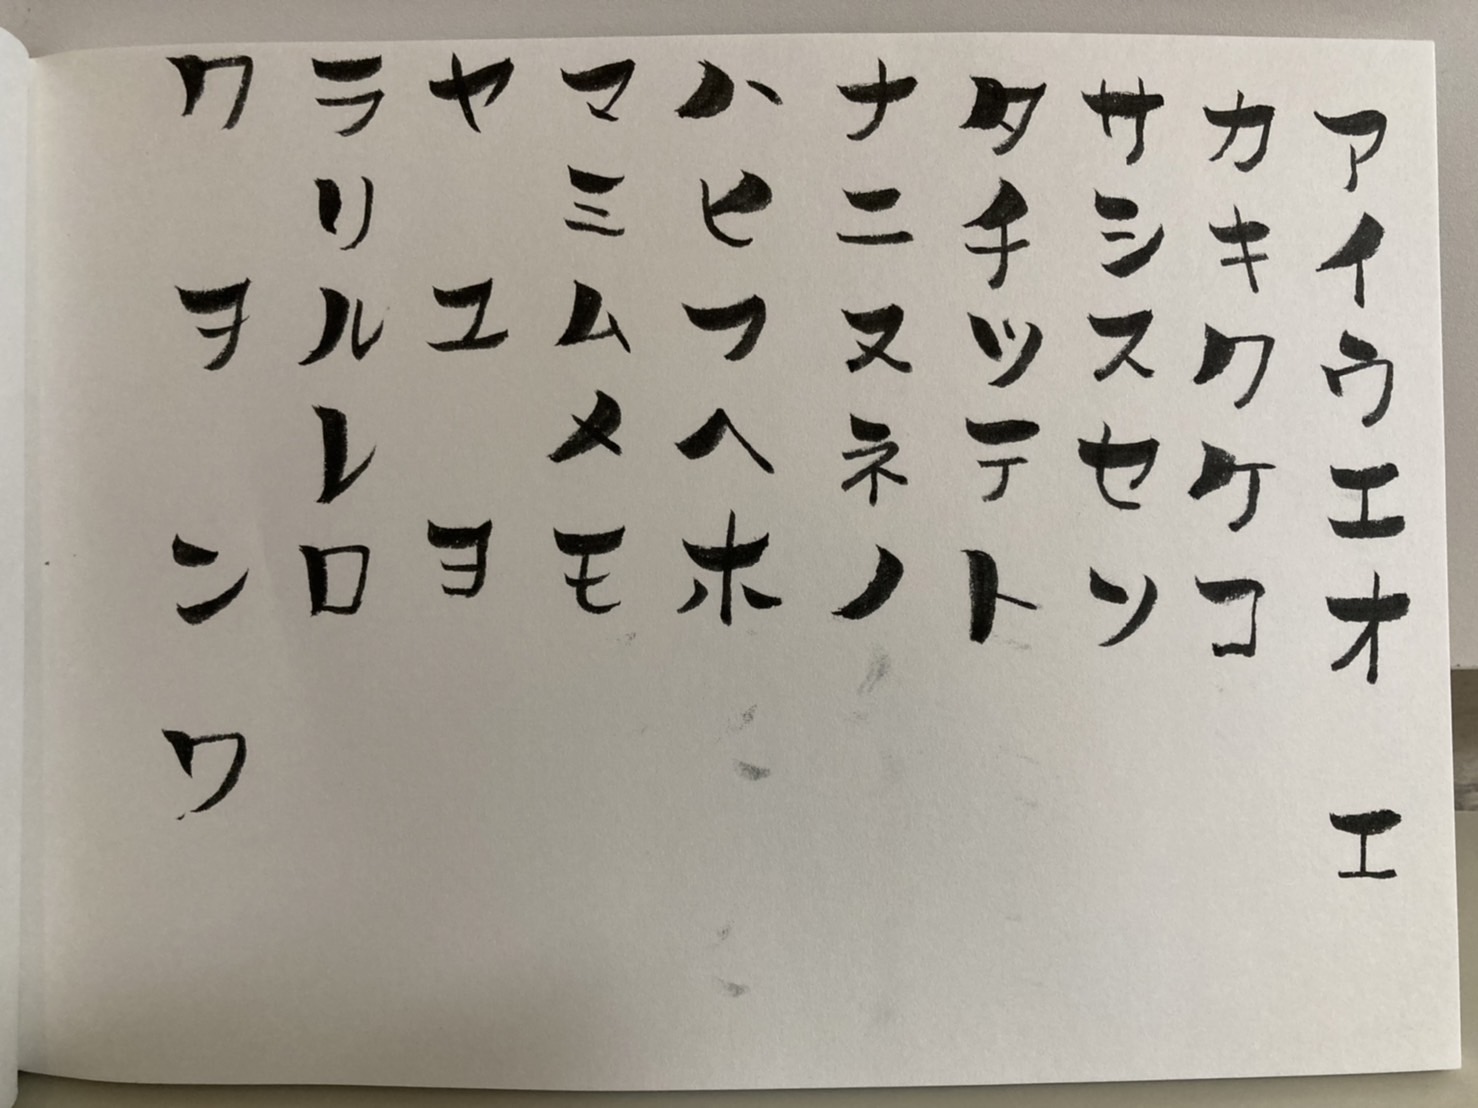 アイウエオ エ
カキクケコ
サシスセソ
タチツテト
ナニヌネノ
ハヒフヘホ
マミムメモ
ヤ ユ ヨ
ラリルレロ
ワ ヲ ン ワ